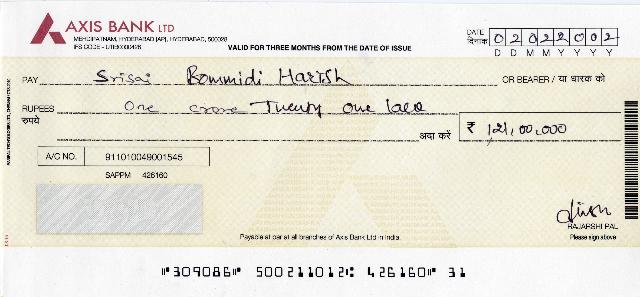 AXIS BANK LTD
MEHDIPATNAM, HYDERABAD [AP], HYDERABAD, 500028
IFS CODE - UTIB0000426
VALID FOR THREE MONTHS FROM THE DATE OF ISSUE
DATE दिनांक 02022002
D D M M Y Y Y Y
PAY Srisai Bommidi Harish OR BEARER / या धारक को
RUPEES रुपये One crore Twenty One lacs
अदा करें ₹ 1,21,00,000
A/C NO. 911010049001545
SAPPM 426160
RAJARSHI PAL
Payable at par at all branches of Axis Bank Ltd in India.
Please sign above
⑈309086⑈ 500211012⑆ 426160⑈ 31